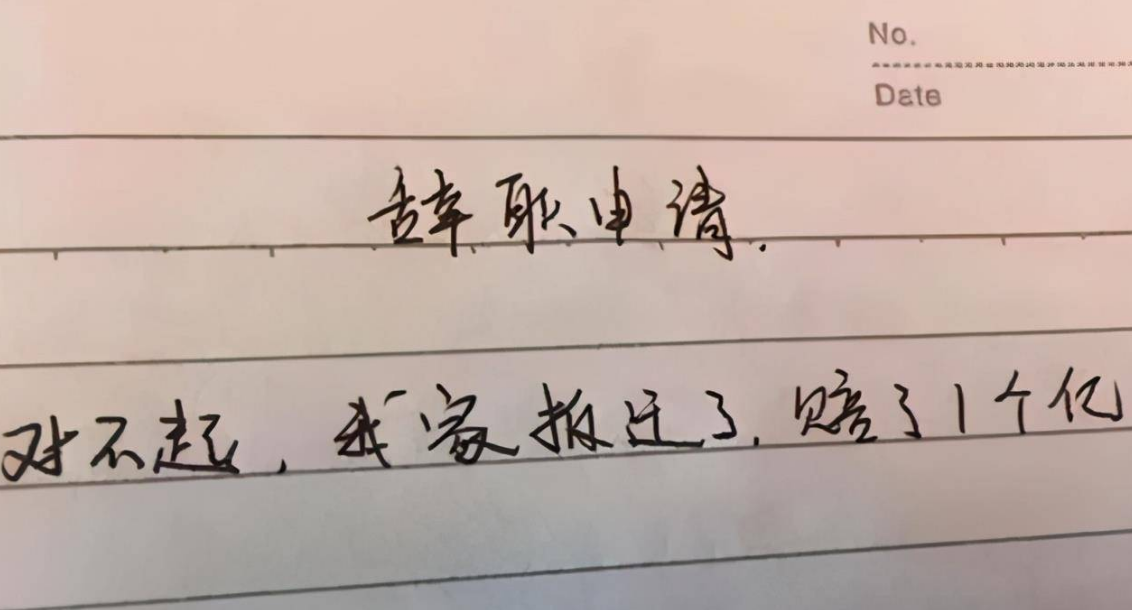 No.
Date
辞职申请.
对不起，我家拆迁了.赔了1个亿